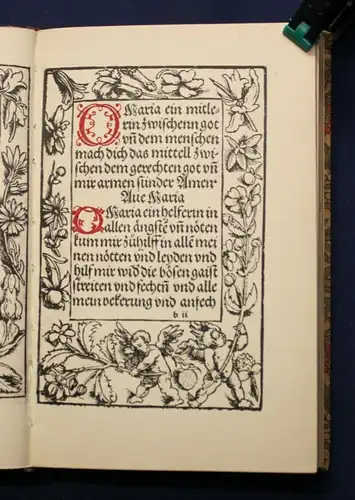 O Maria ein mitle-
rin zwischenn got
vñ dem menschen
mach dich das mittell zwi-
schen dem gerechten got vñ
mir armen sünder Amen
Aue Maria
O Maria ein helferin in
allen ängstē vñ nöten
kum mir zůhilff in alle mei
nen nötten vnd leyden vnd
hilf mir wid die bösen gaist
streiten vnd fechtñ vnd alle
mein vekerung vnd anfech
b ii